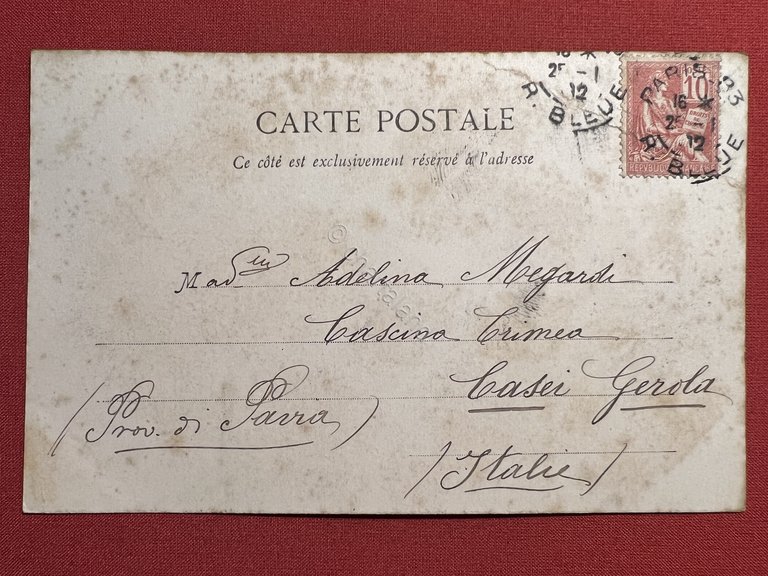 CARTE POSTALE
Ce côté est exclusivement réservé à l'adresse
10
PARIS 83
16 *
25 -1
12
R. BLEUE
25 -1
12
R. BLEUE
Mad elle Adelina Megardi
Cascina Crimea
Casei Gerola
(Prov. di Pavia)
(Italie)